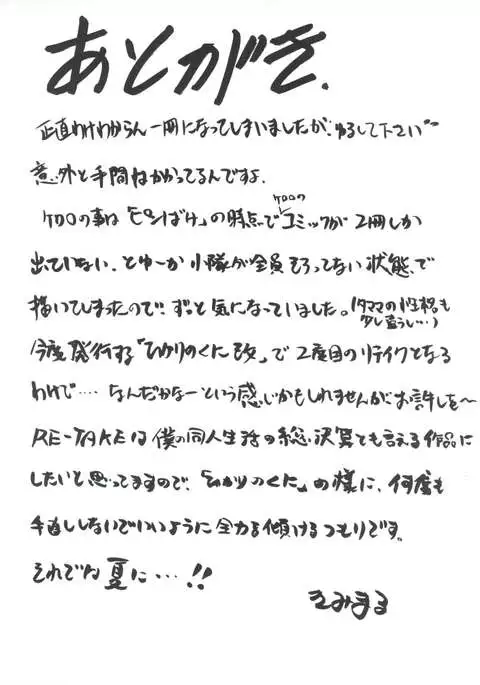 あとがき.
正直わけわからん一冊になってしまいましたが、ゆるして下さい〜
意外と手間はかかってるんですよ.
ケロロの事は「ピンぼけ」の時点でケロロのコミックが2冊しか
出ていない、とゆーか小隊が全員そろってない状態で
描いてしまったので、ずっと気になっていました。(タママの性格も少し違うし…)
今度発行する「ひかりのくに改」で2度目のリテイクとなる
わけで…. なんだかなーという感じかもしれませんが、お許しを〜
RE-TAKEは僕の同人生活の総決算とも言える作品に
したいと思ってますので、「ひかりのくに」の様に、何度も
手直ししないでいいように全力を傾けるつもりです。
それでは夏に…!!
きみまる